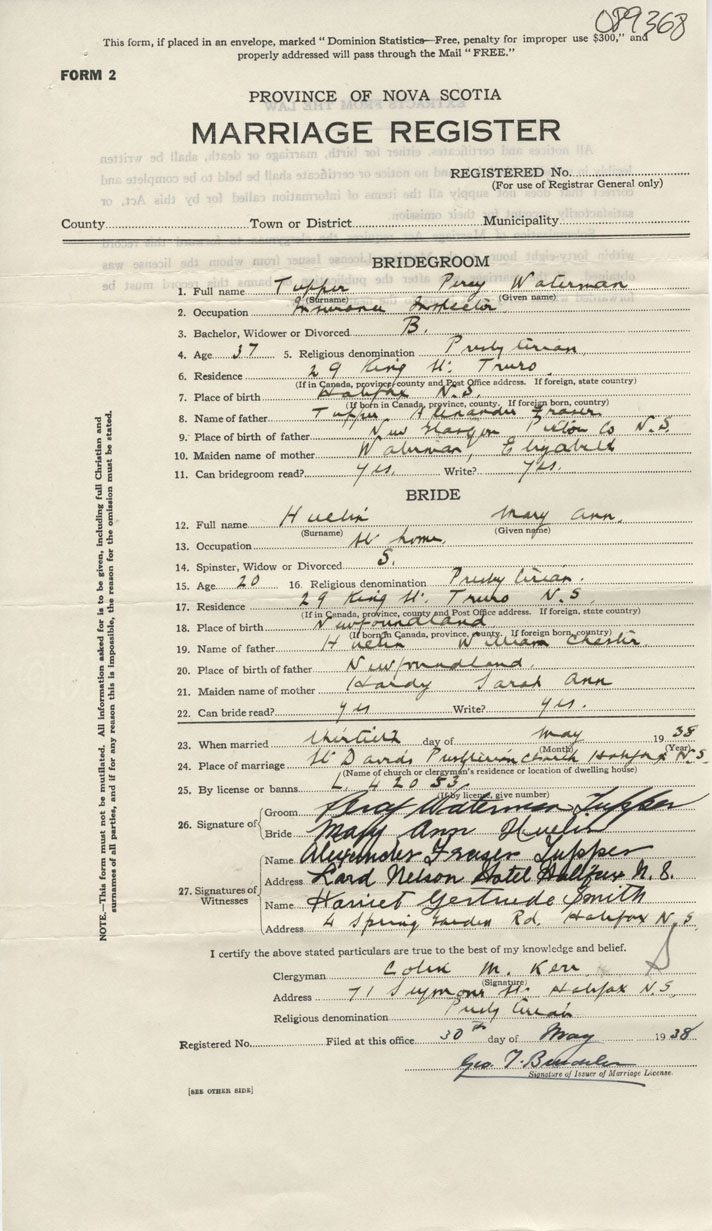 089368
This form, if placed in an envelope, marked "Dominion Statistics—Free, penalty for improper use $300," and
properly addressed will pass through the Mail "FREE."
FORM 2
PROVINCE OF NOVA SCOTIA
MARRIAGE REGISTER
REGISTERED No.
(For use of Registrar General only)
County Town or District Municipality
BRIDEGROOM
1. Full name Tupper Percy Waterman
(Surname) (Given name)
2. Occupation Insurance Inspector
3. Bachelor, Widower or Divorced B.
4. Age 37 5. Religious denomination Presbyterian
6. Residence 29 King St. Truro
(If in Canada, province, county and Post Office address. If foreign, state country)
7. Place of birth Halifax N.S.
(If born in Canada, province, county. If foreign born, country)
8. Name of father Tupper Alexander Fraser
9. Place of birth of father New Glasgow Pictou Co N.S.
10. Maiden name of mother Waterman, Elizabeth
11. Can bridegroom read? yes. Write? yes.
BRIDE
12. Full name Huelin Mary Ann.
(Surname) (Given name)
13. Occupation At home.
14. Spinster, Widow or Divorced S.
15. Age 20 16. Religious denomination Presbyterian.
17. Residence 29 King St. Truro N.S.
(If in Canada, province, county and Post Office address. If foreign, state country)
18. Place of birth Newfoundland
(If born in Canada, province, county. If foreign born, country)
19. Name of father Huelin William Chester
20. Place of birth of father Newfoundland.
21. Maiden name of mother Hardy Sarah Ann
22. Can bride read? yes Write? yes.
23. When married thirtieth day of May 1938
(Month) (Year)
24. Place of marriage St Davids Presbyterian Church Halifax N.S.
(Name of church or clergyman's residence or location of dwelling house)
25. By license or banns L. 42053
(If by license, give number)
26. Signature of Groom Percy Waterman Tupper
Bride Mary Ann Huelin
27. Signatures of Witnesses Name Alexander Fraser Tupper
Address Lord Nelson Hotel Halifax N.S.
Name Harriet Gertrude Smith
Address 4 Spring Garden Rd. Halifax N.S.
I certify the above stated particulars are true to the best of my knowledge and belief.
Clergyman Colin M. Kerr
(Signature)
Address 71 Seymour St. Halifax N.S.
Religious denomination Presbyterian
Registered No. Filed at this office 30th day of May 1938
Geo. T.
Signature of Issuer of Marriage License.
[SEE OTHER SIDE]
NOTE.—This form must not be mutilated. All information asked for is to be given, including full Christian and
surnames of all parties, and if for any reason this is impossible, the reason for the omission must be stated.